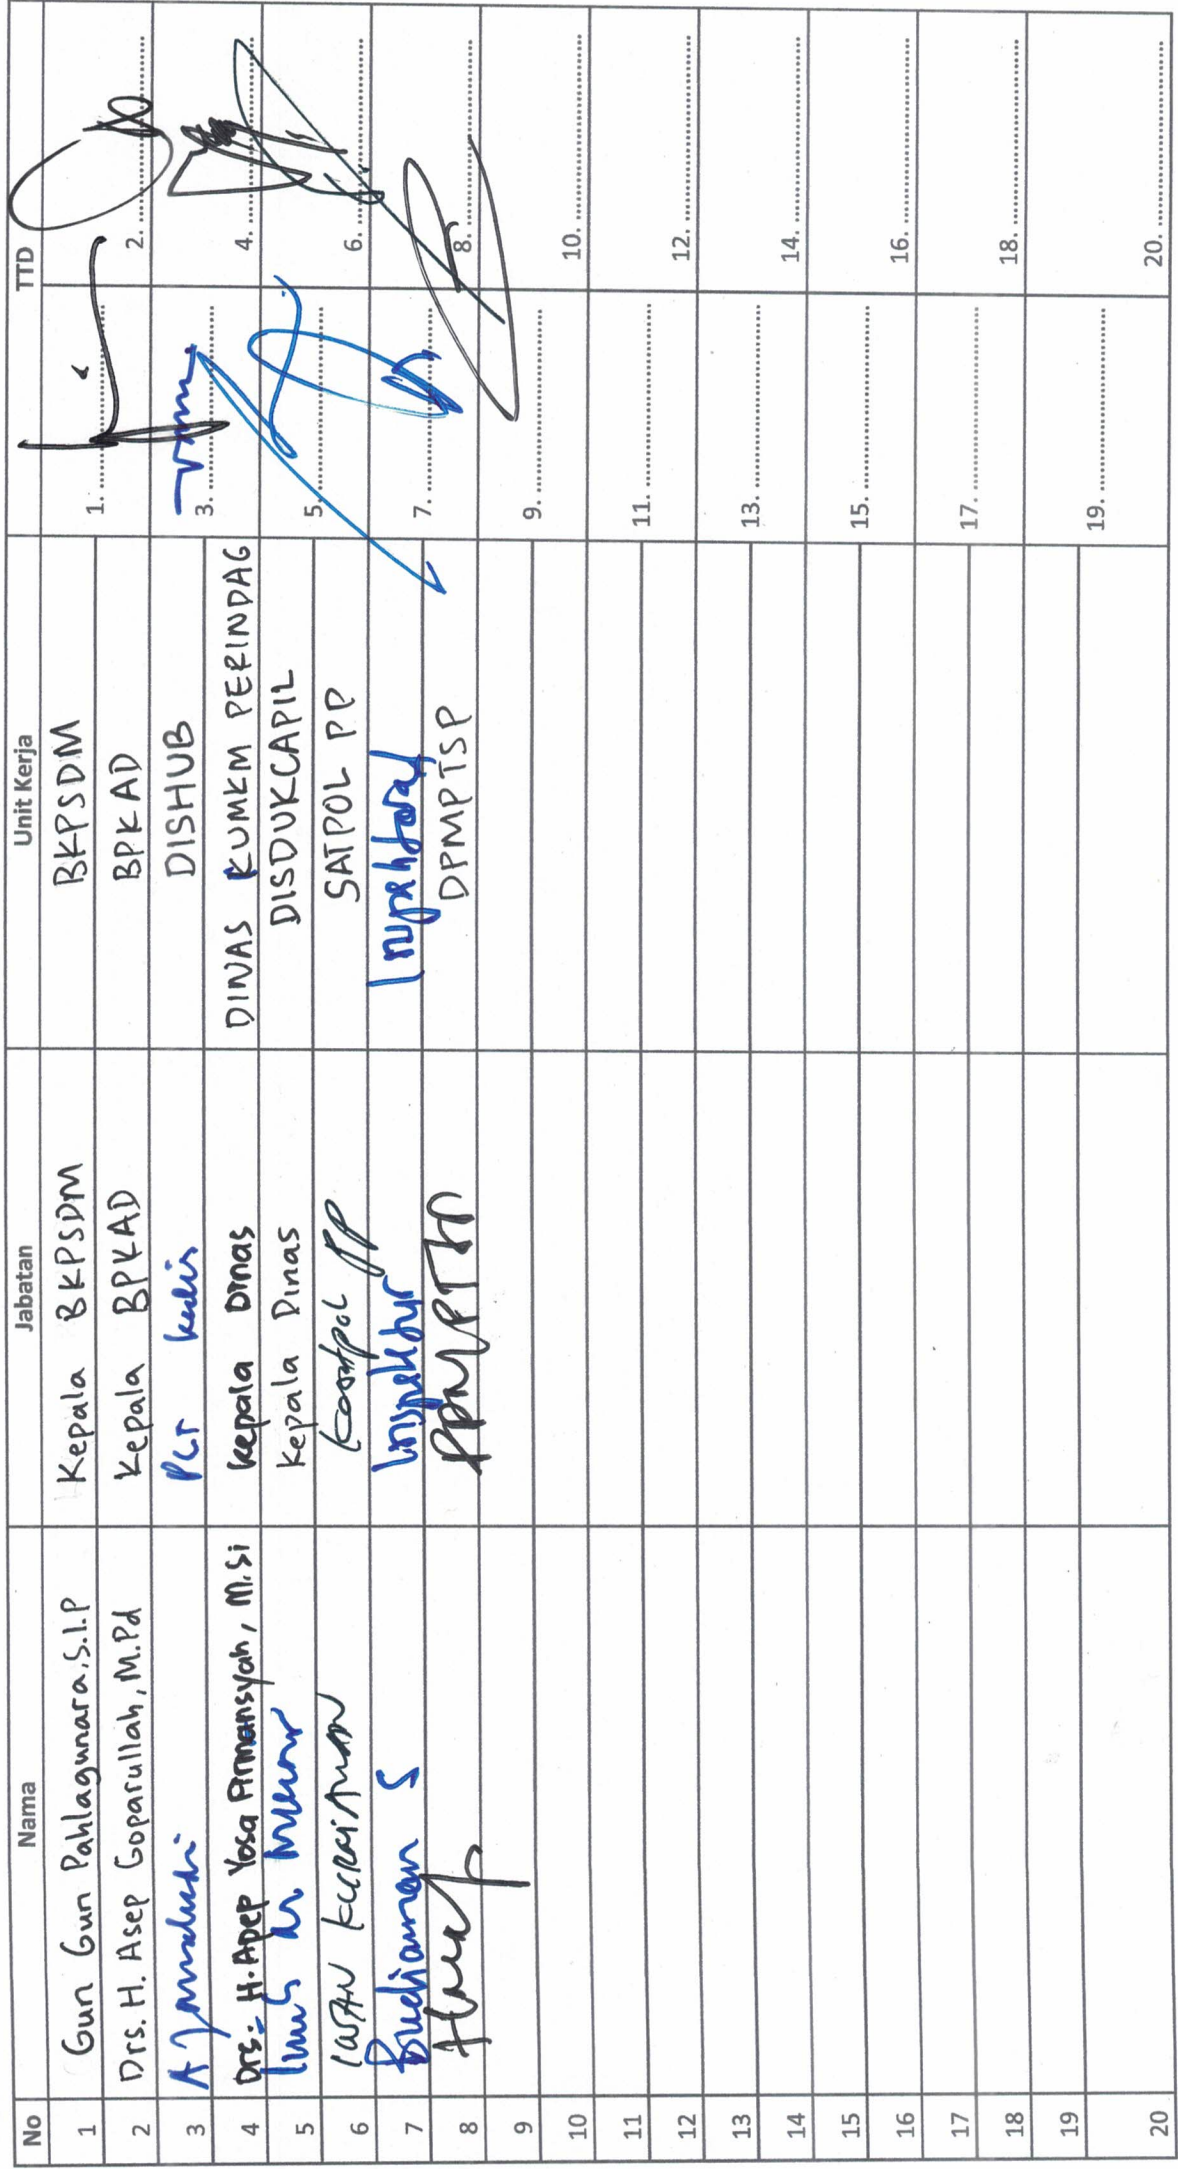 No Nama Jabatan Unit Kerja TTD
1 Gun Gun Pahlagunara, S.I.P Kepala BKPSDM BKPSDM 1. ........
2 Drs. H. Asep Goparullah, M.Pd Kepala BPKAD BPKAD 2. ........
3 A PLT DISHUB 3. ........
4 Drs. H. Apep Yosa Firmansyah, M.Si Kepala Dinas DINAS KUMKM PERINDAG 4. ........
5 Kepala Dinas DISDUKCAPIL 5. ........
6 SATPOL PP 6. ........
7 Budiaman S Inspektur Inspektorat 7. ........
8 DPMPTSP 8. ........
9 9. ........
10 10. ........
11 11. ........
12 12. ........
13 13. ........
14 14. ........
15 15. ........
16 16. ........
17 17. ........
18 18. ........
19 19. ........
20 20. ........